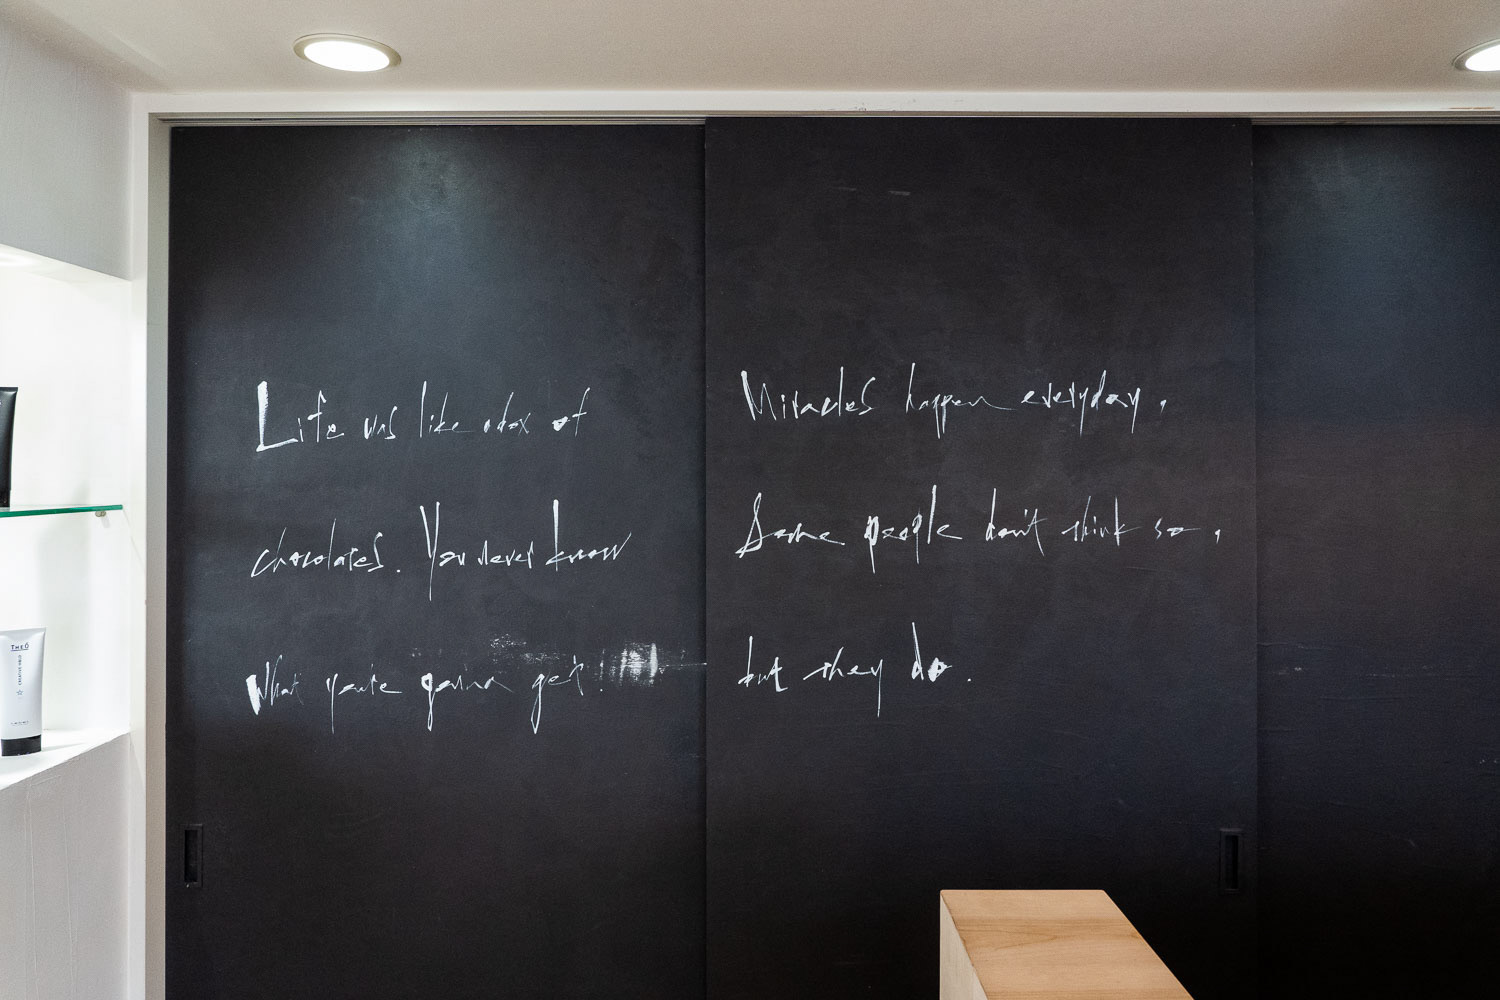 Life was like a box of
chocolates. You never know
What you're gonna get.
Miracles happen everyday,
Some people don't think so,
but they do.
THEO
CREATIVE HOLD